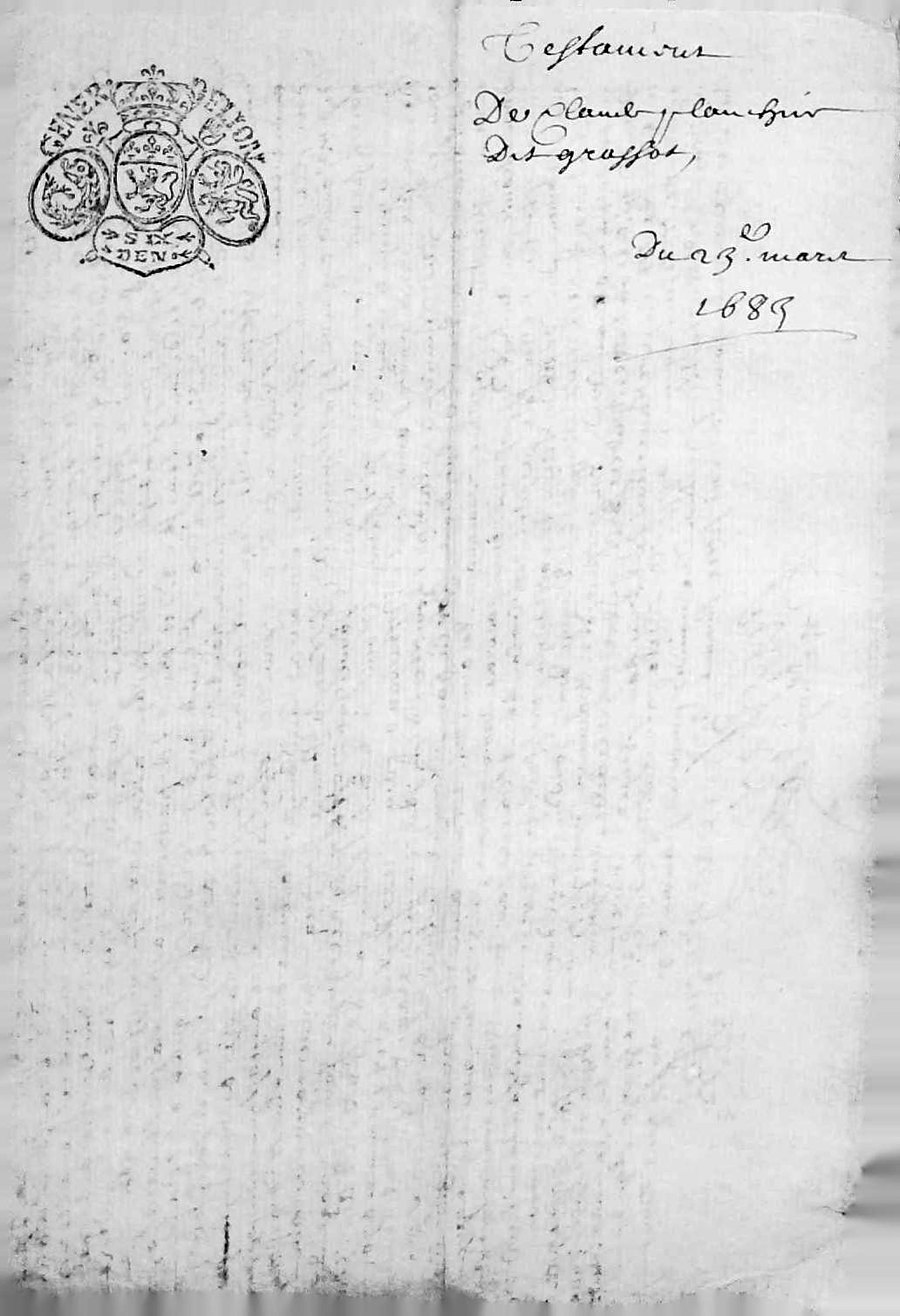 GENER. DE LYON
SIX
DEN
Testament
De Claude planchir
Dit grassot,
Du 23e. mars
1683